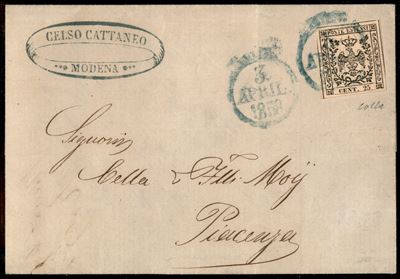 CELSO CATTANEO
MODENA
3
APRIL.
POSTE ESTENSI
CENT. 25
colla
Signori
Cella & Flli Moÿ
Piacenza